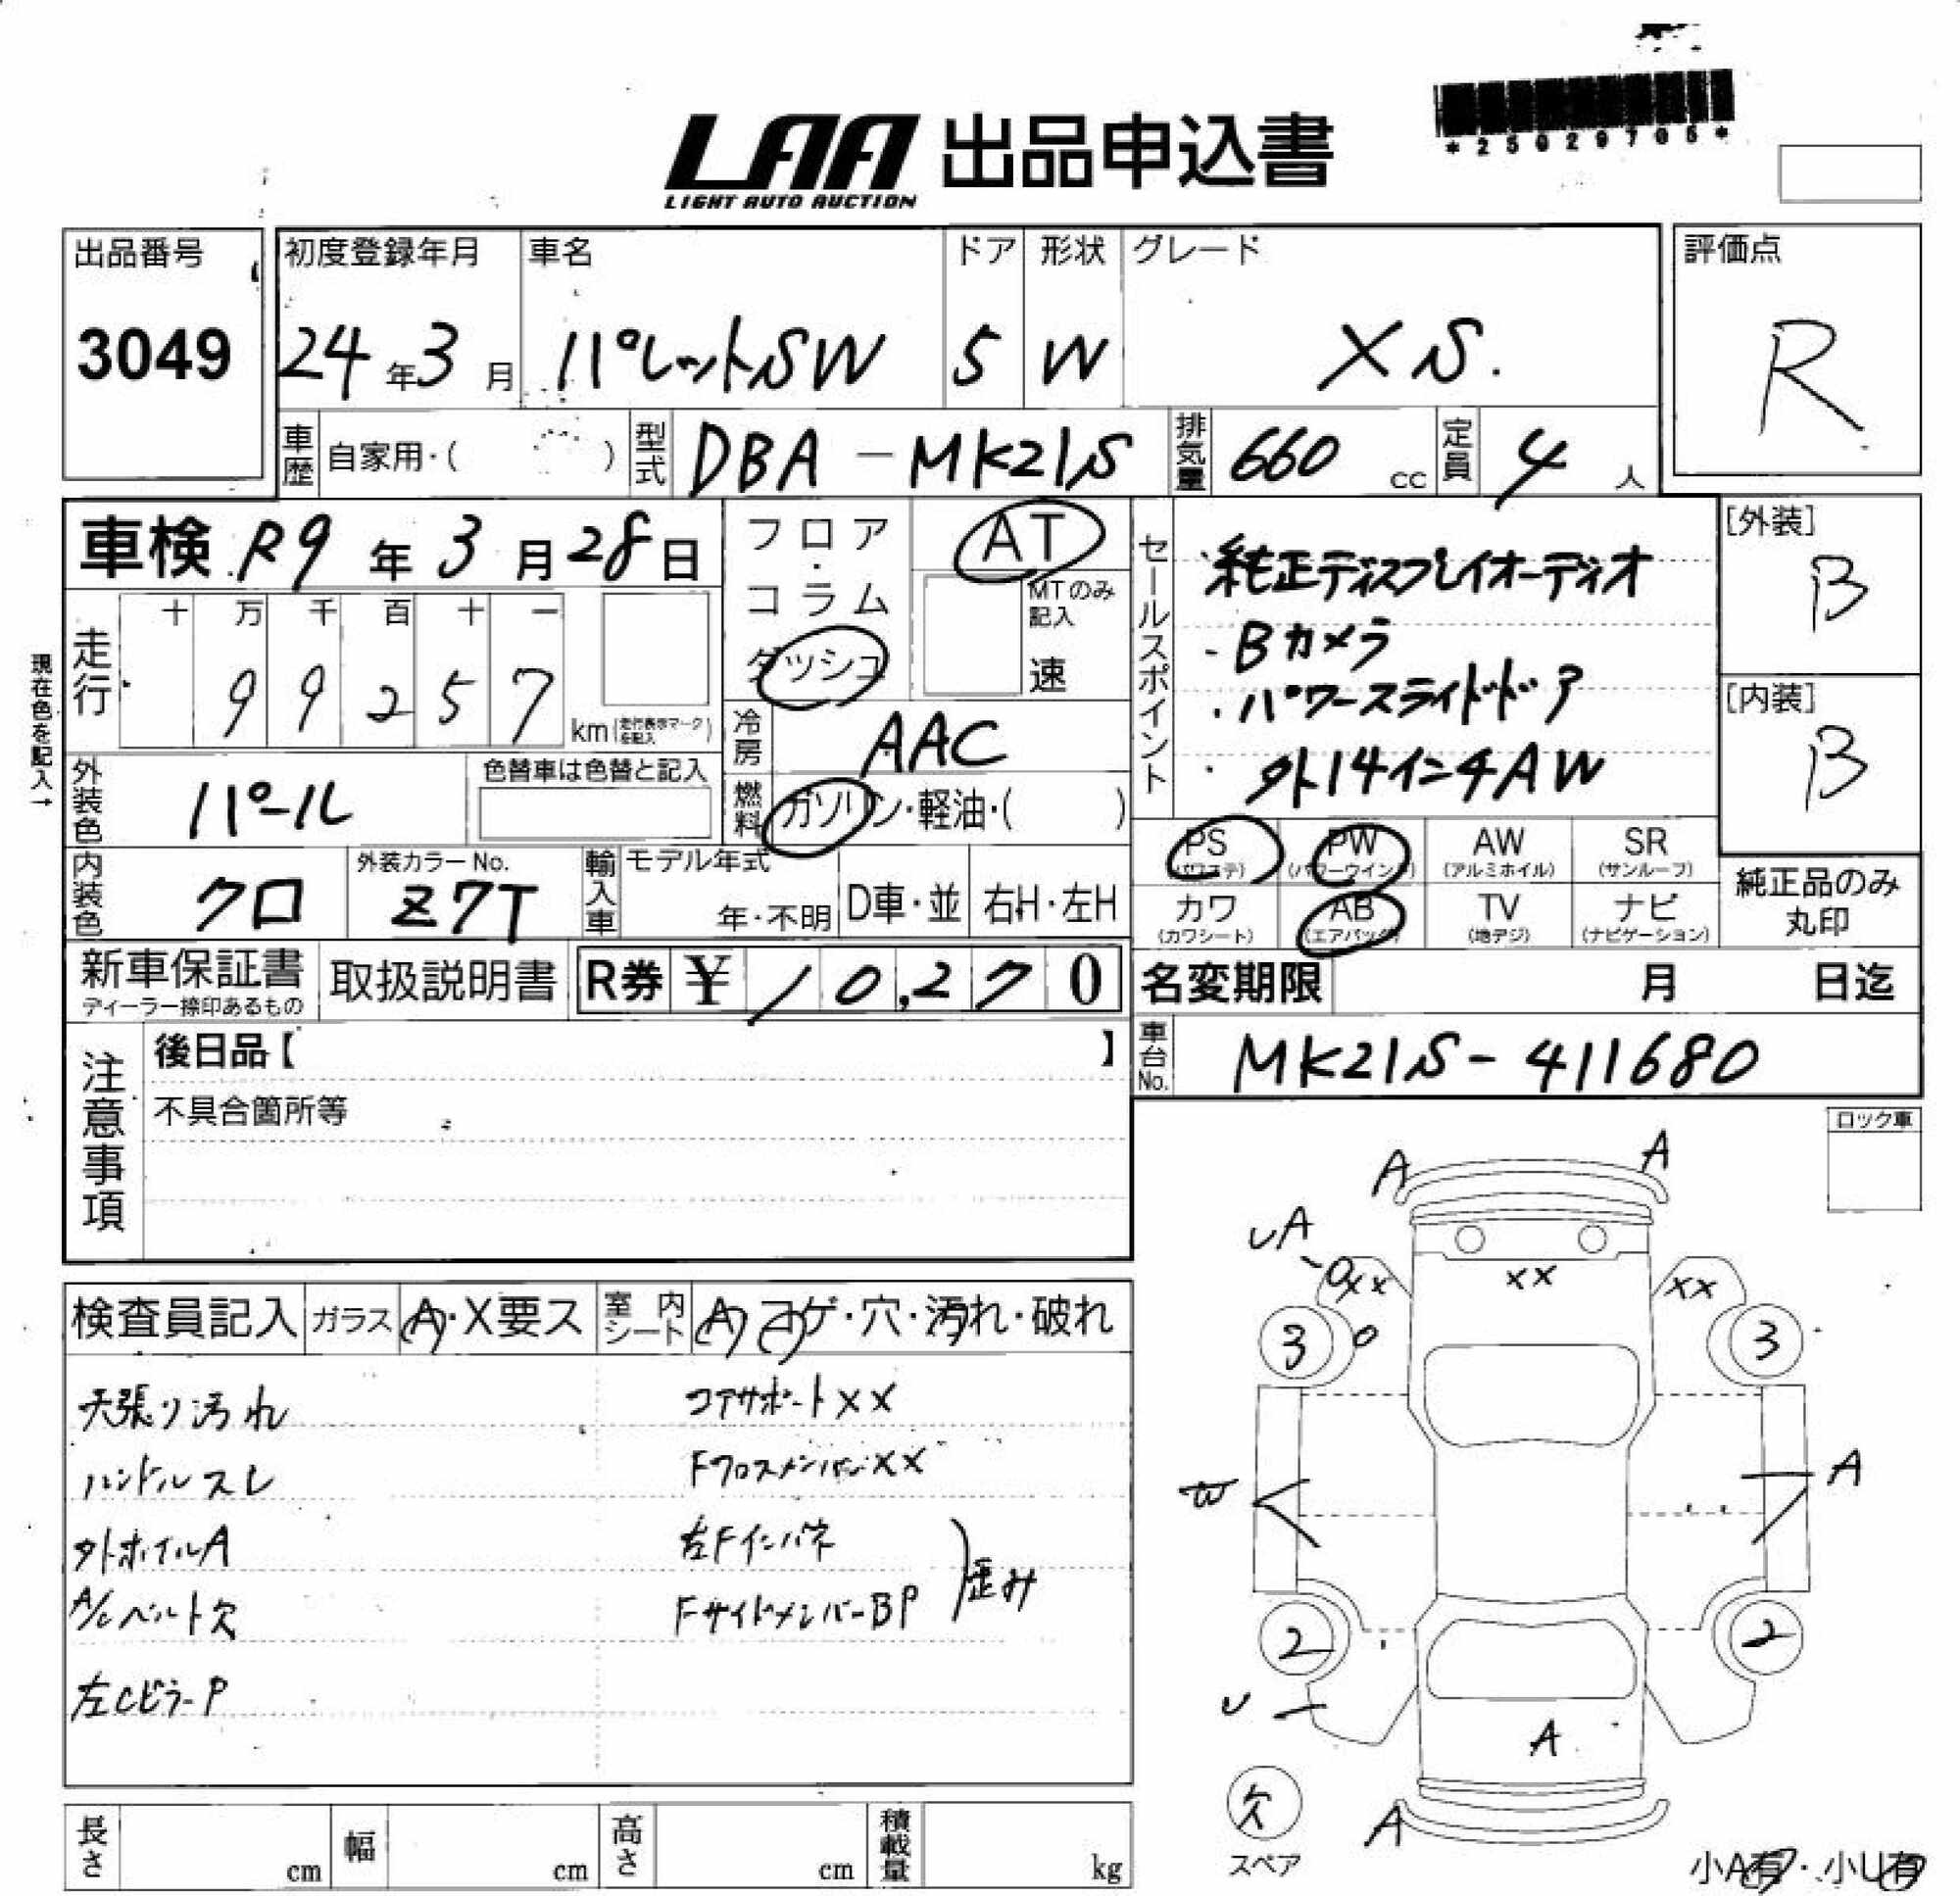 *25029705*
LAA 出品申込書
LIGHT AUTO AUCTION
出品番号
3049
初度登録年月
24年3月
車名
パレットSW
ドア
5
形状
W
グレード
XS.
評価点
R
車歴 自家用・( )
型式 DBA-MK21S
排気量 660 cc
定員 4 人
車検 R9年3月28日
フロア・コラム ダッシュ
AT
MTのみ記入
速
セールスポイント
・純正ディスプレイオーディオ
・Bカメラ
・パワースライドドア
・外14インチAW
[外装]
B
[内装]
B
現在色を記入→
走行
十 万 千 百 十 一
9 9 2 5 7
km(走行表示マークを記入)
冷房 AAC
外装色 パール
色替車は色替と記入
燃料 ガソリン・軽油・( )
PS (パワステ)
PW (パワーウインド)
AW (アルミホイル)
SR (サンルーフ)
カワ (カワシート)
AB (エアバック)
TV (地デジ)
ナビ (ナビゲーション)
純正品のみ丸印
内装色 クロ
外装カラーNo.
Z7T
輸入車
モデル年式
年・不明
D車・並
右H・左H
新車保証書
ディーラー捺印あるもの
取扱説明書
R券 ¥ 10,270
名変期限 月 日迄
車台No. MK21S-411680
注意事項
後日品【 】
不具合箇所等
ロック車
検査員記入
ガラス A・X要ス
室内シート A・コゲ・穴・汚れ・破れ
天張り汚れ
ハンドルスレ
外ホイルA
A/Cベルト欠
左CピラーP
コアサポートXX
FクロスメンバーXX
左Fインパネ
FサイドメンバーBP
歪み
A
A
UA
XX
XX
XX
3
3
W
A
2
2
U
A
A
欠
スペア
小A有・小U有
長さ cm
幅 cm
高さ cm
積載量 kg